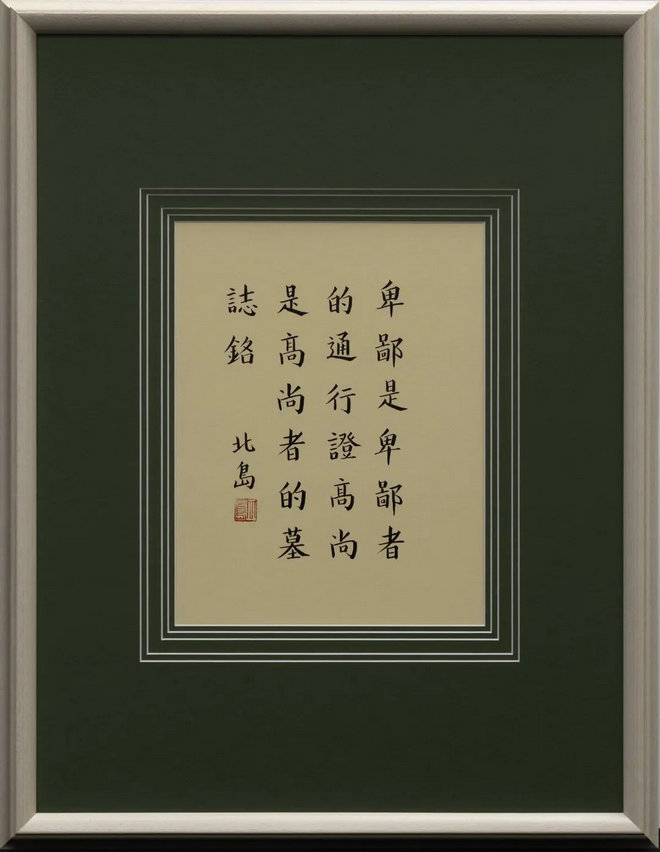 卑鄙是卑鄙者
的通行證髙尚
是髙尚者的墓
誌銘
北島